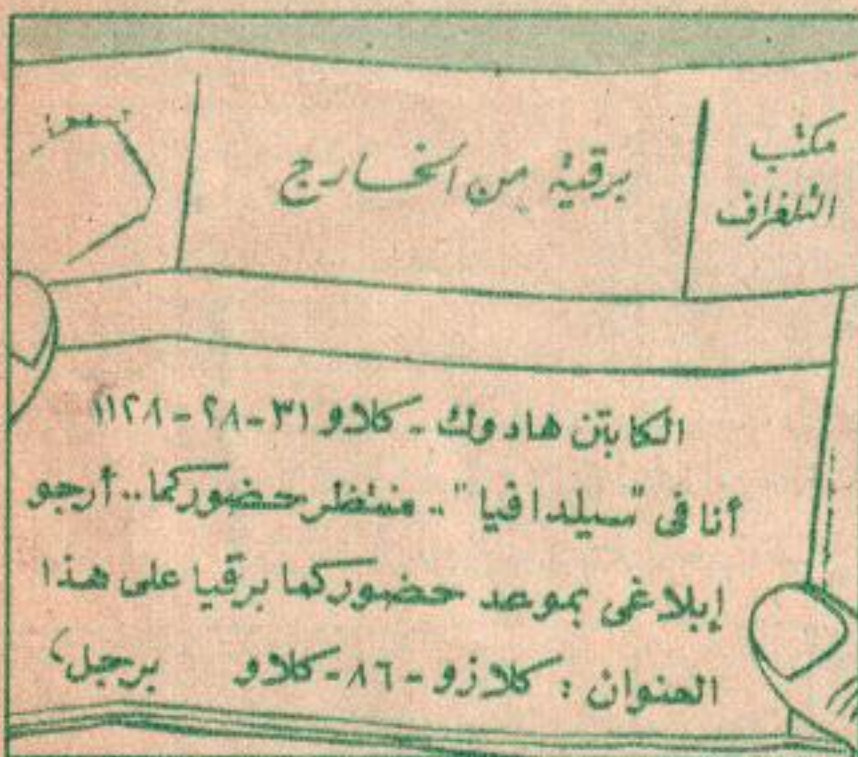 مكتب
التلغراف
برقية من الخارج
الكابتن هادوك - كلاو ٣١-٢٨-١١٢٨
أنا فى "سيلدافيا".. منتظر حضوركما.. أرجو
إبلاغى بموعد حضوركما برقيا على هذا
العنوان : كلازو -٨٦- كلاو برجل